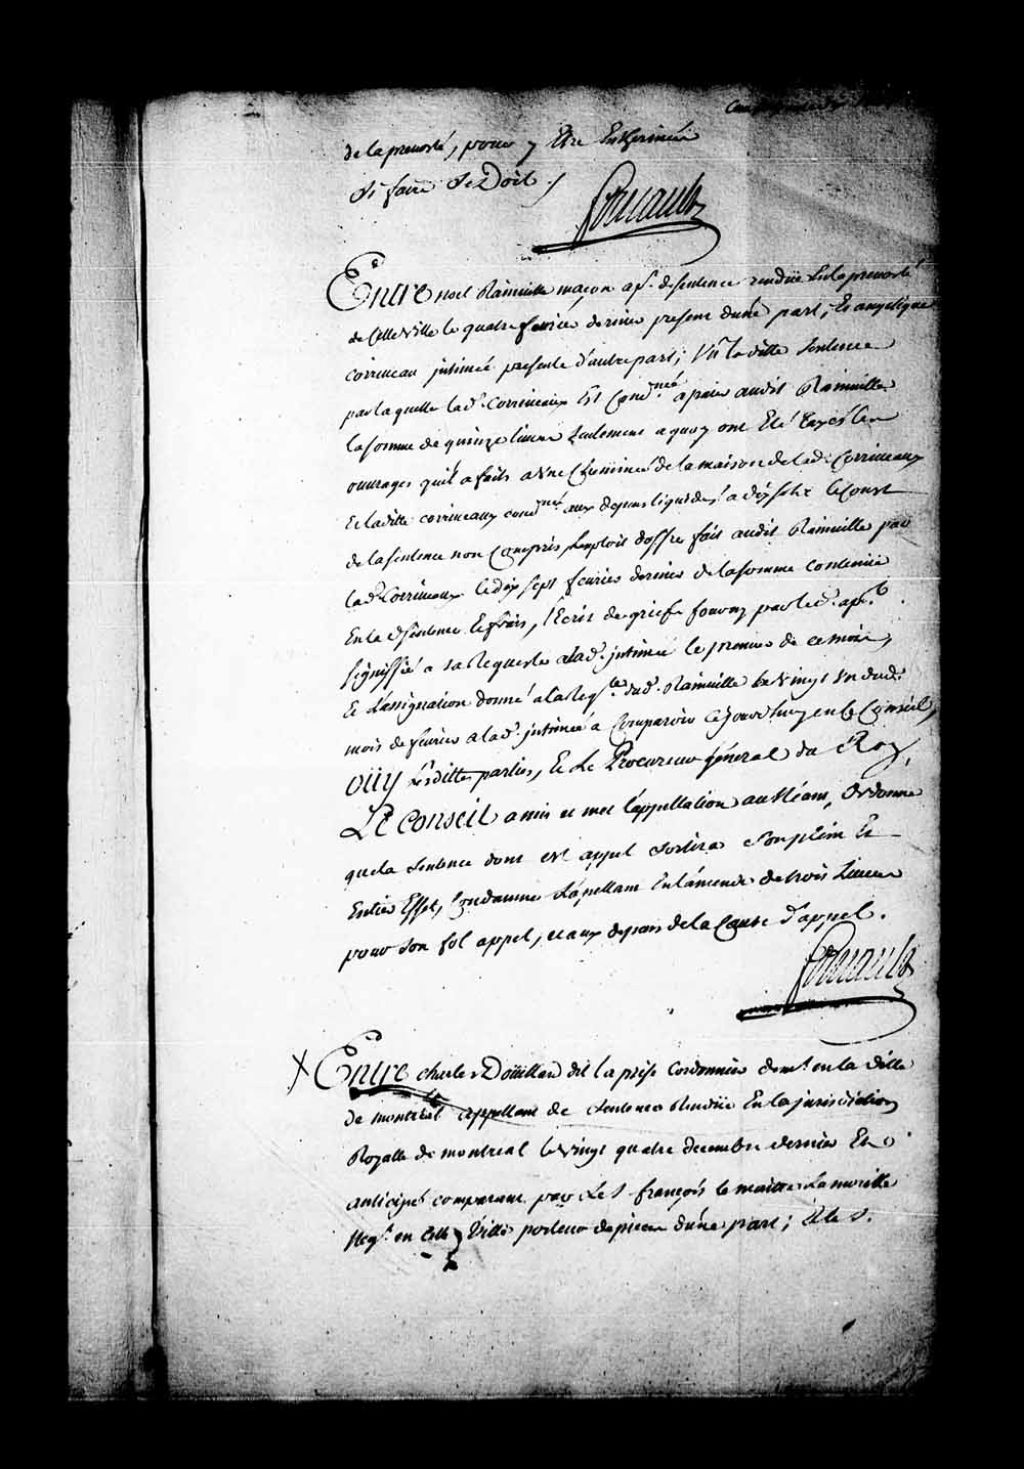 de la prevosté, pour y Etre Enterinée
Si faire Se Doit ./
Foucault
Entre noel Rainville maçon apt. de sentence rendüe En la prevosté
de Cette Ville le quatre fevrier dernier present d'une part, Et angelique
corriveau intimée presente d'autre part; Vu laditte Sentence
par laquelle lad. Corriveaux Est Condnée a paier audit Rainville
la somme de quinze livres Seulement a quoy ont Eté taxés les
ouvrages quil a faits a Une Cheminée de la maison de lad. Corriveaux
Et laditte corriveaux condnée aux depens liquidés a dix sols le Coust
de la sentence non Compris, Lexploit d'offre fait audit Rainville par
lad. Corriveaux le dix sept fevrier dernier de la somme contenüe
En lad. Sentence Et frais, l'Ecrit de griefs fourny par led. apt.
signiffié a sa Requeste a lad. intimée le premier de ce mois,
Et L'assignation donné a la Reqte. dud. Rainville le Vingt Un dud.
mois de fevrier a lad. intimée a Comparoir Ce jourdhuy en le Conseil,
oüy lesdittes parties, Et Le Procureur General du Roy,
Le Conseil a mis et met l'appellation au Néant, Ordonne
que la Sentence dont est appel Sortira Son plein Et
Entier Effet, Condamne L'apellant En l'amende de trois Livres
pour Son fol appel, et aux depens de la Cause d'appel.
Foucault
X Entre charles Doüillard dit la prise Cordonnier demt. en la Ville
de montreal appellant de Sentence Rendüe En la jurisdiction
Royalle de montreal le vingt quatre decembre dernier Et
anticipé comparant par Le S. françois le maitre Lamorille
Negt. en Cette Ville porteur de pieces d'une part; Et le S.